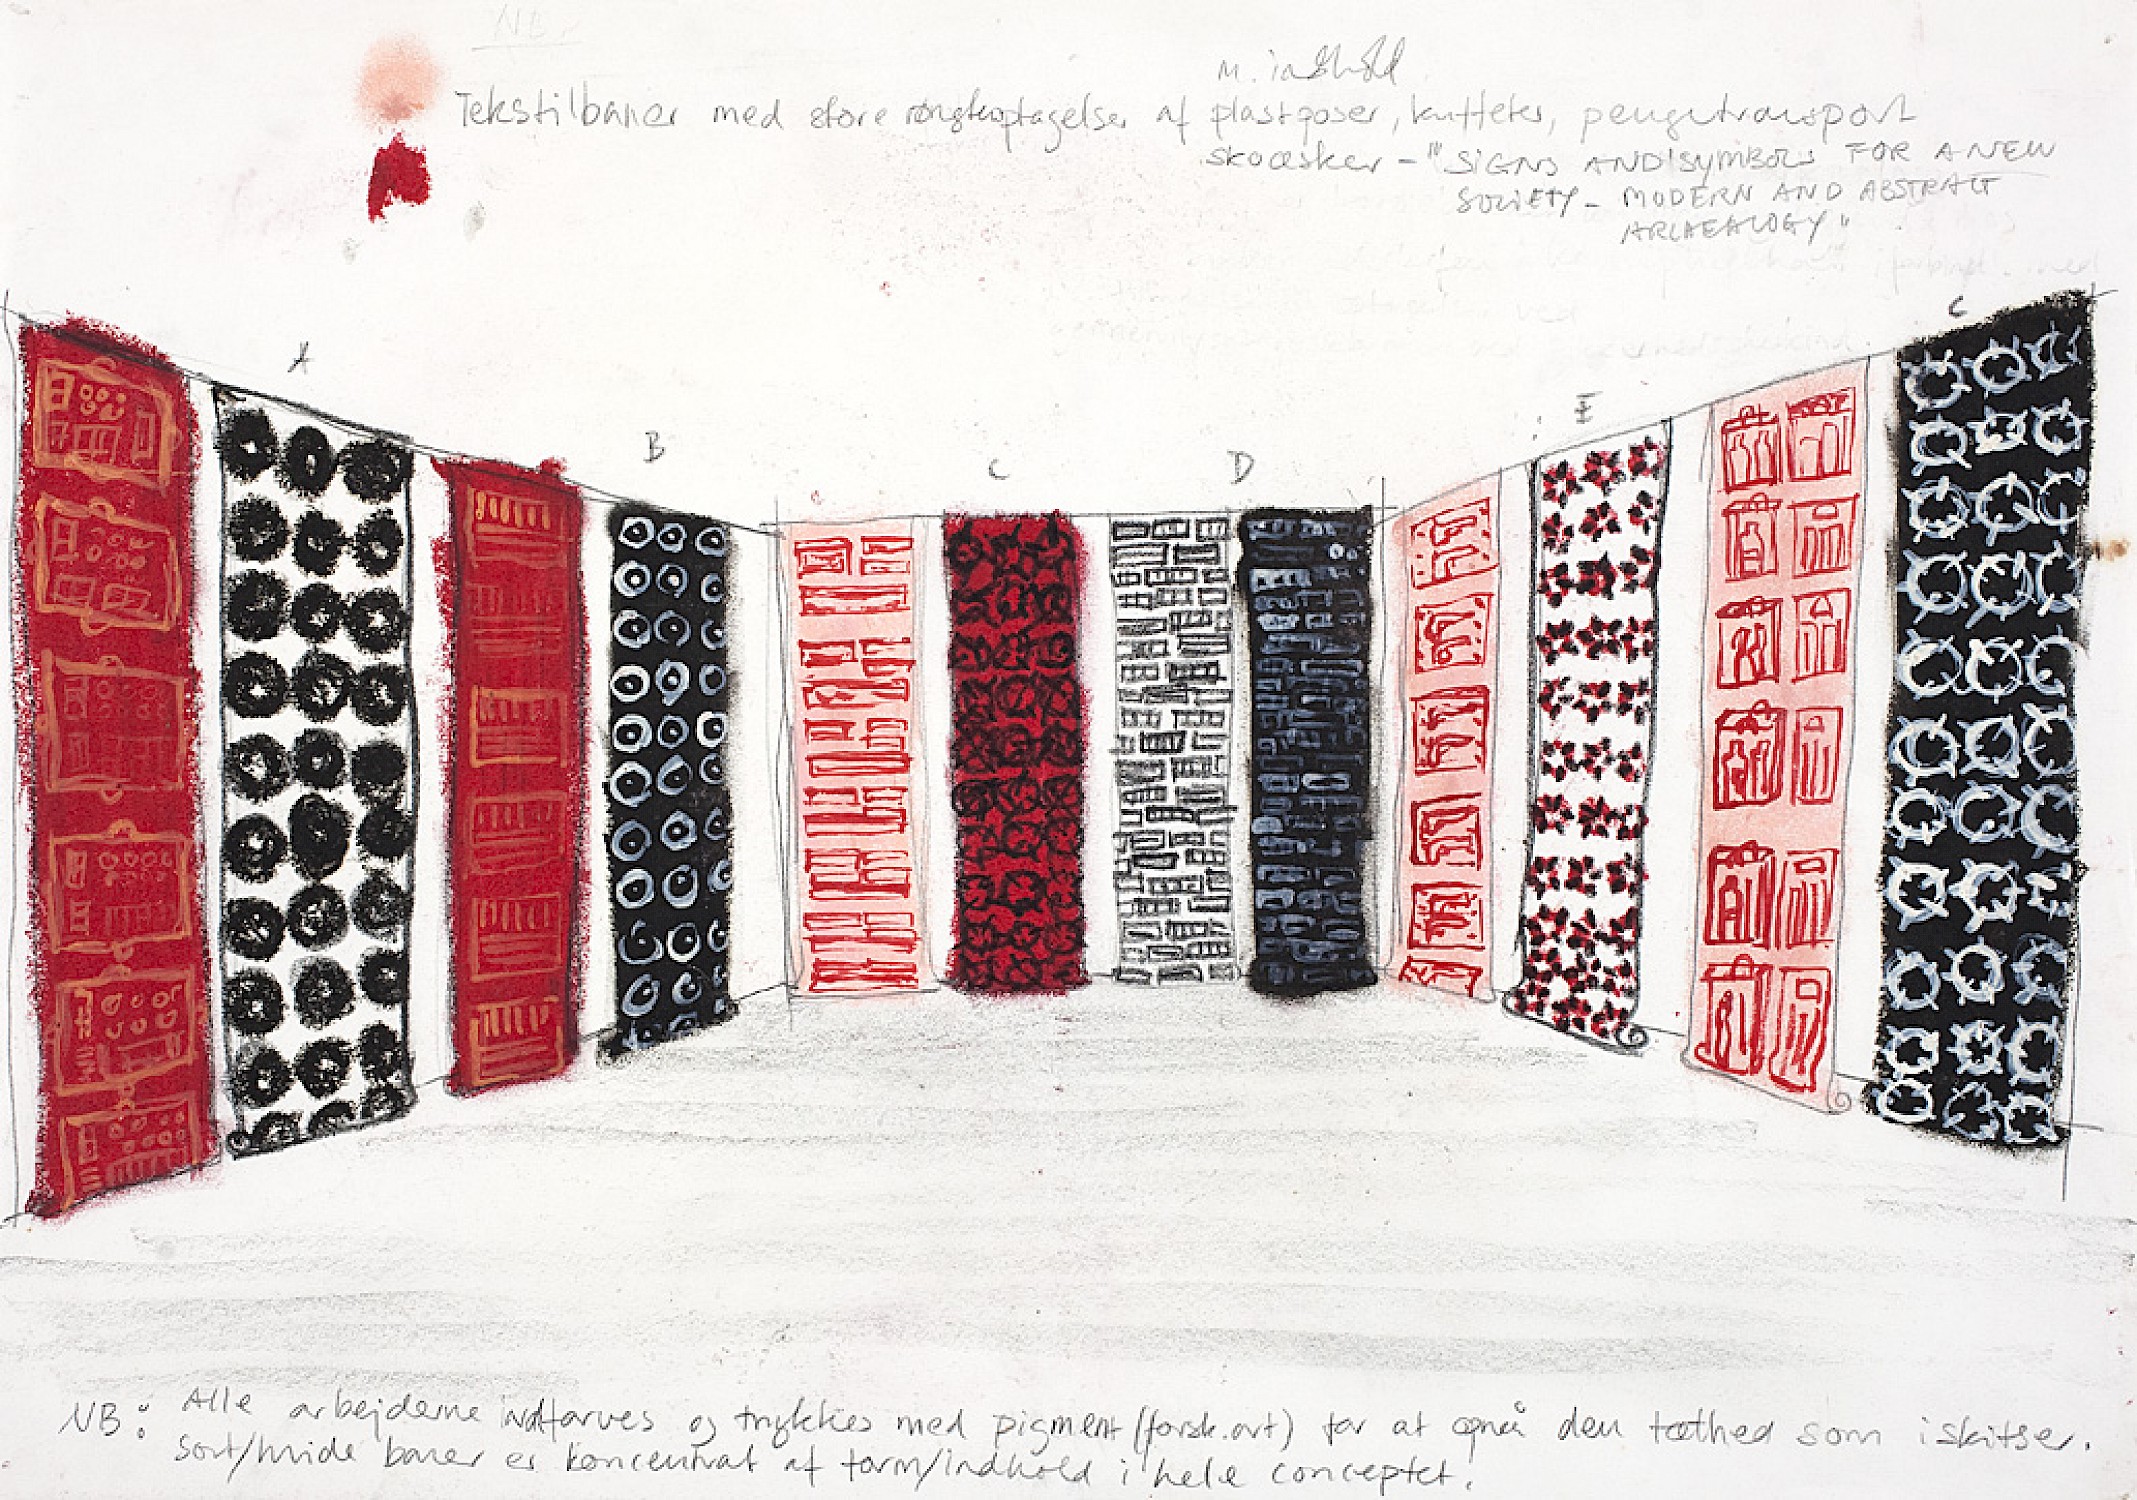 NB.
m. indhold
Tekstilbaner med store røngtenoptagelser af plastposer, kufferter, pengetransport
skoæsker - "SIGNS AND SYMBOLS FOR A NEW
SOCIETY - MODERN AND ABSTRACT
ARCHAEALOGY"
A
B
C
D
E
C
NB: Alle arbejderne indfarves og trykkes med pigment (forsk. art) for at opnå den tæthed som i skitser.
Sort/hvide baner er koncentrat af form/indhold i hele conceptet.